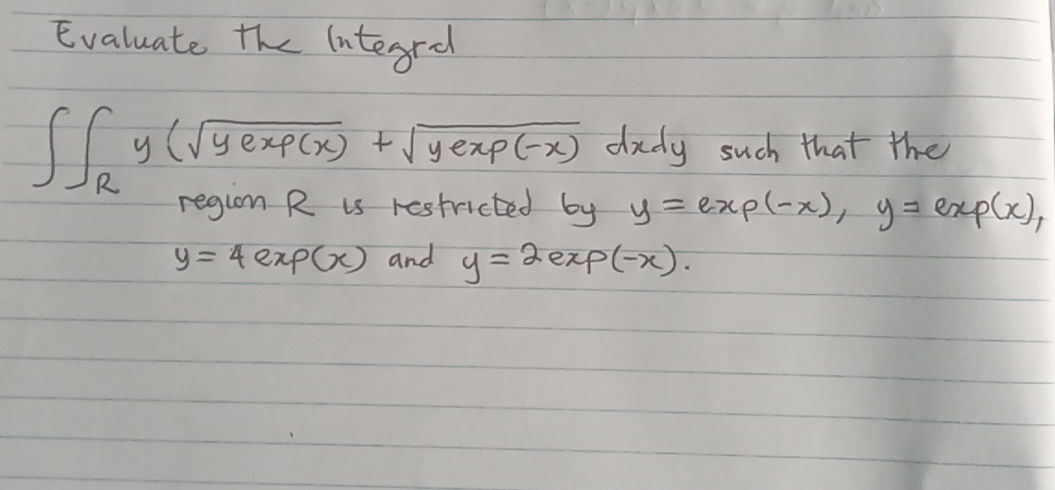 Evaluate the Integral
∬_R y(√(y exp(x)) + √(y exp(-x)) dxdy such that the
region R is restricted by y = exp(-x), y = exp(x),
y = 4 exp(x) and y = 2 exp(-x).